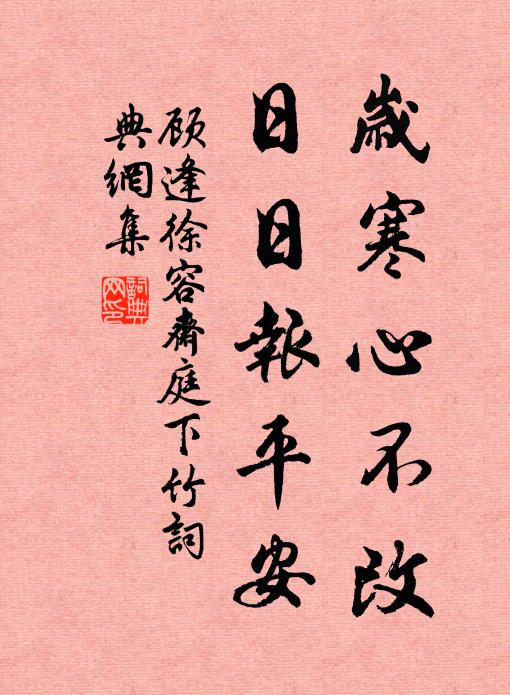 歲寒心不改
日日報平安
顾逢徐容齋庭下竹詞
典網集
詞典
网印